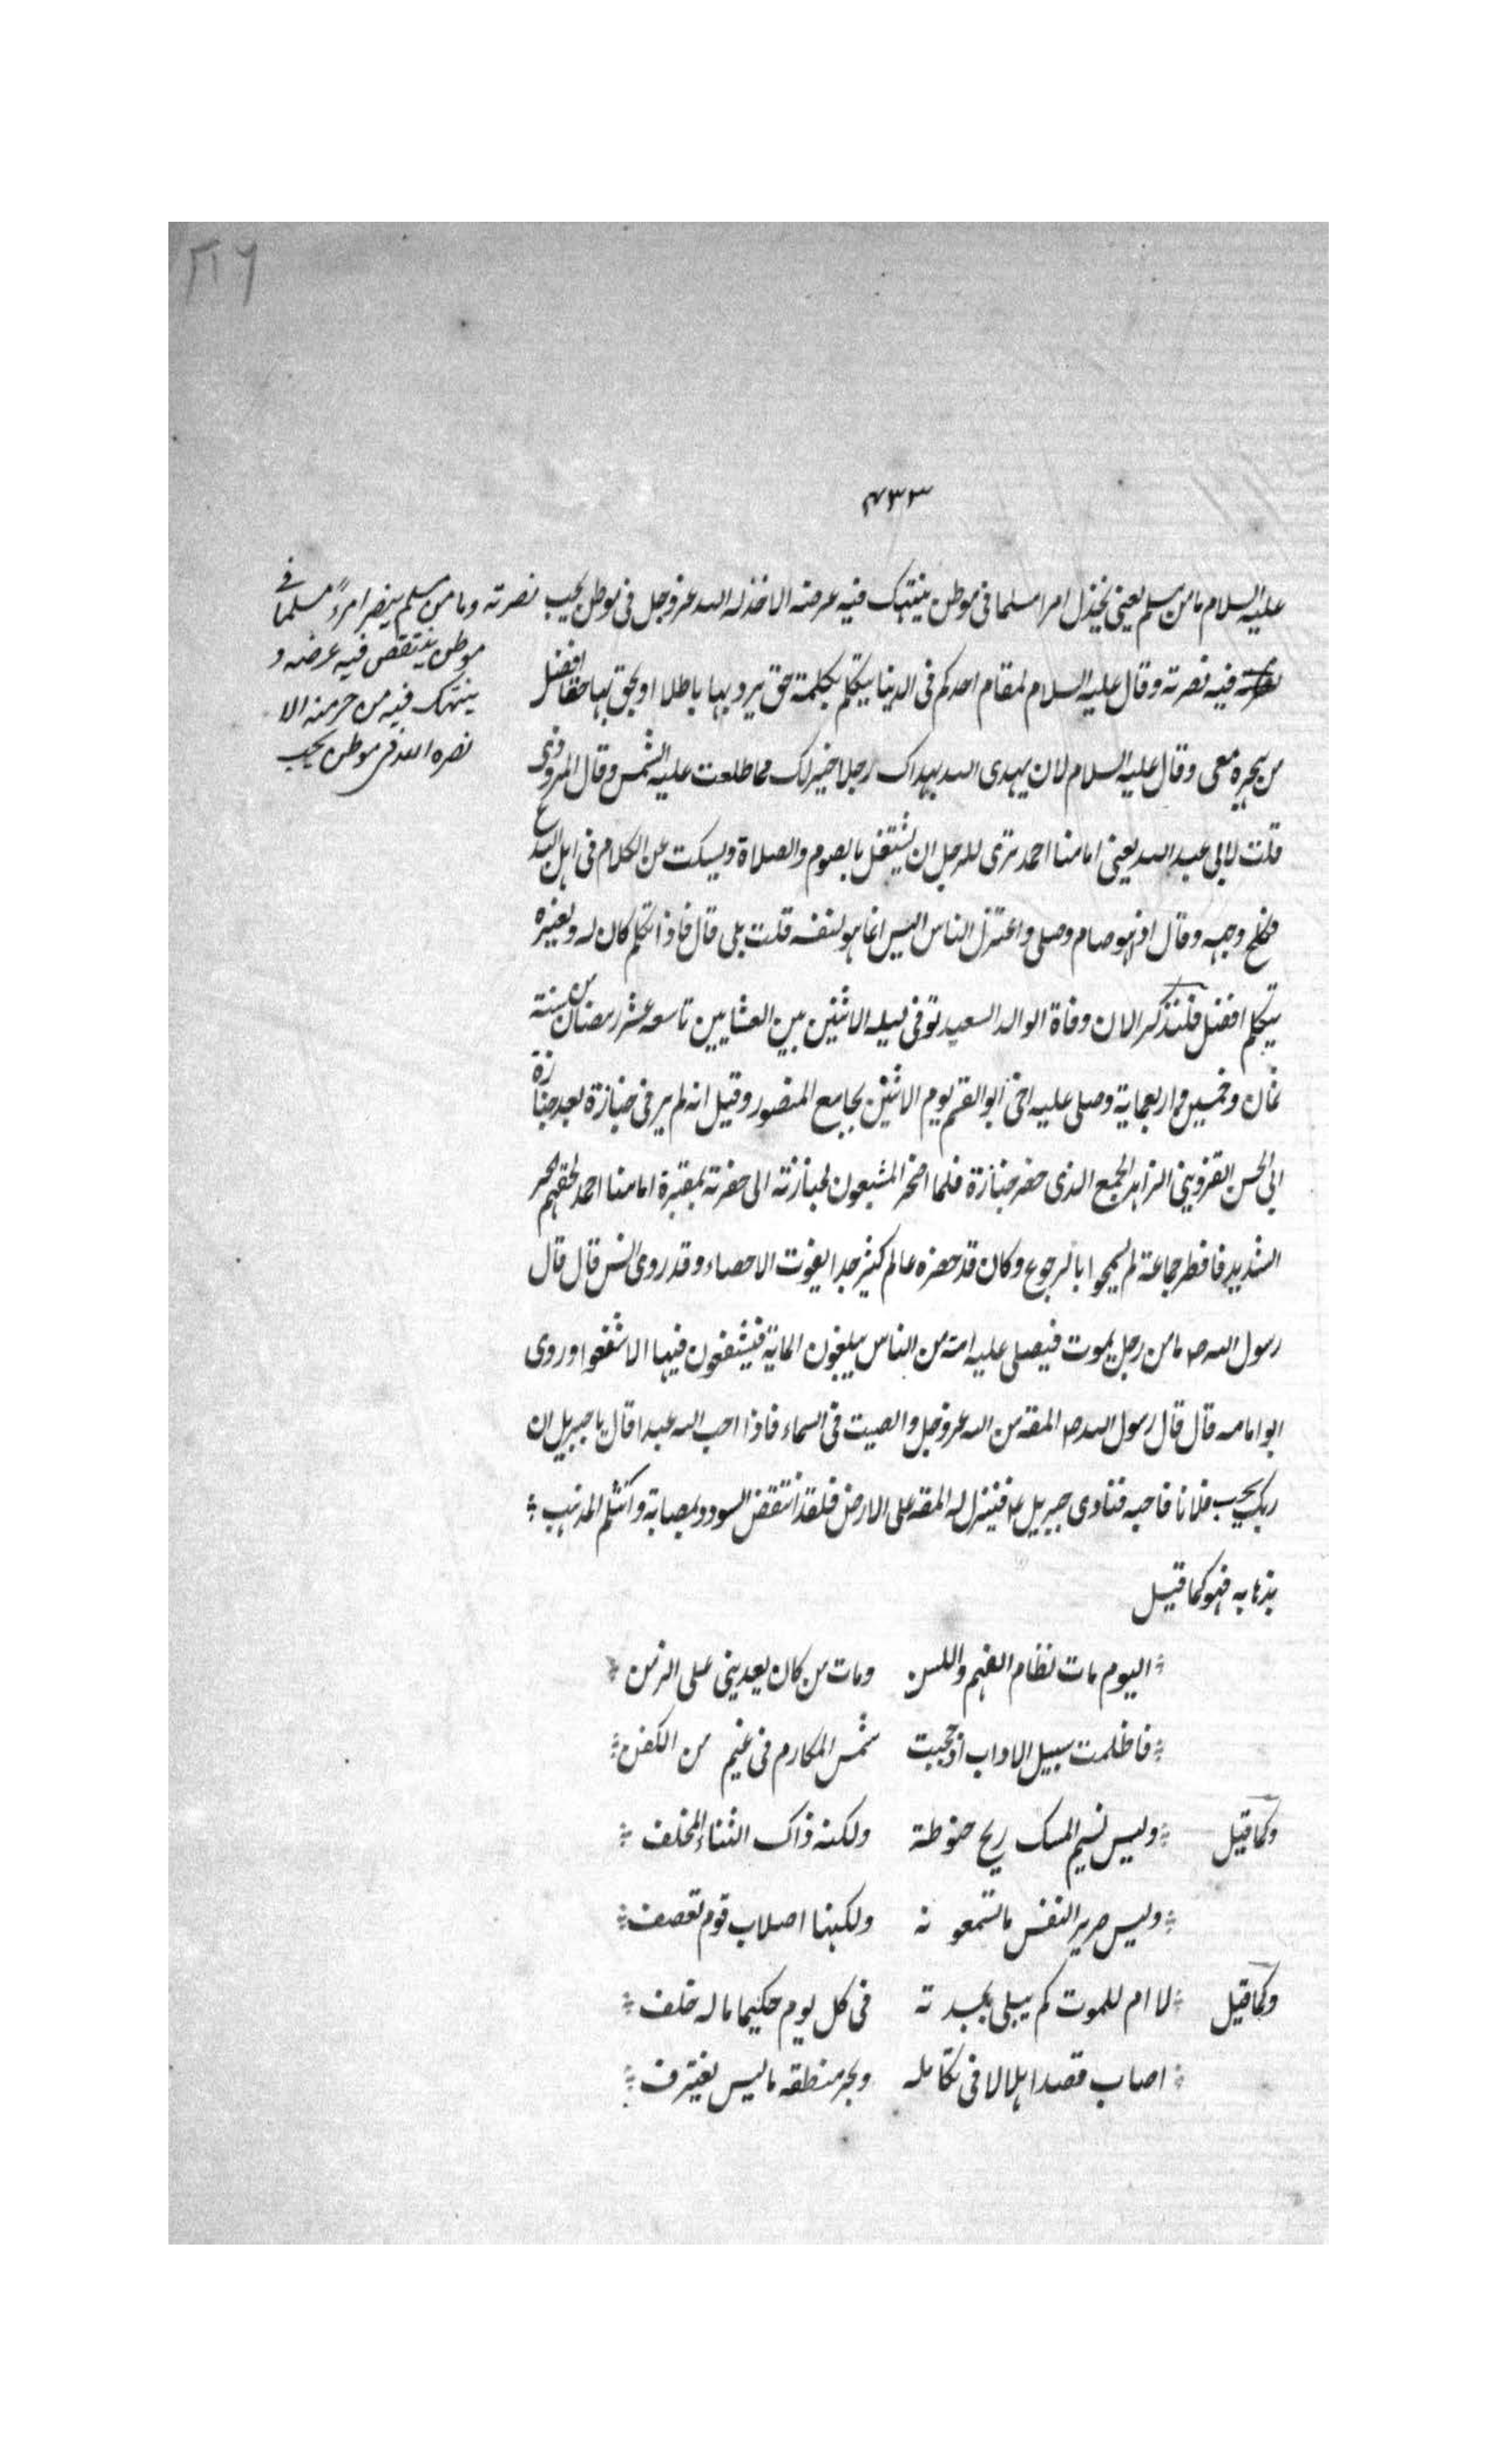 ٢١٦
٤٣٣
عليه السلام ما من مسلم يعنى يخذل امرا مسلما فى موطن ينتهك فيه عرضه الا خذله الله عز وجل فى موطن يحب
نصرته وما من مسلم ينصر امرءً مسلما فى
موطن ينتقص فيه عرضه و
ينتهك فيه من حرمته الا
نصره الله فى موطن يحب
فيه نصرته وقال عليه السلام لمقام احدكم فى الدنيا يتكلم بكلمة حق يرد بها باطلا او يحق بها حقا افضل
من هجرة معى وقال عليه السلام لان يهدى الله بهداك رجلا خير لك مما طلعت عليه الشمس وقال المروذى
قلت لابى عبد الله يعنى امامنا احمد ترى للرجل ان يشتغل بالصوم والصلاة ويسكت عن الكلام فى اهل البدع
فكلح وجهه وقال اذا هو صام وصلى واعتزل الناس اليس انما هو لنفسه قلت بلى قال فاذا تكلم كان له ولغيره
يتكلم افضل فلنذكر الان وفاة الوالد السعيد توفى ليلة الاثنين بين العشايين تاسع عشر رمضان من سنة
ثمان وخمسين واربعماية وصلى عليه اخى ابو القسم يوم الاثنين بجامع المنصور وقيل انه لم ير فى جنازة بعد جنازة
ابى الحسن القزوينى الزاهد الجمع الذى حضر جنازة فلما اضحر المشيعون لجنازته الى حفرته بمقبرة امامنا احمد لحقهم الحر
الشديد فافطر جماعة لم يسمحوا بالرجوع وكان قد حضره عالم كثير جدا يفوت الاحصاء وقد روى انس قال قال
رسول الله صـ ما من رجل يموت فيصلى عليه امة من الناس يبلغون الماية فيشفعون فيها الا شفعوا وروى
ابو امامه قال قال رسول الله صـ المقة من الله عز وجل والصيت فى السماء فاذا احب الله عبدا قال يا جبريل ان
ربك يحب فلانا فاحبه فنادى جبريل عـ فينزل له المقة على الارض فلقد انتقض السودد بمصابة وانثلم المذهب
بذهابه فهو كما قيل
اليوم مات نظام الفهم واللسن ومات من كان يعدينى على الزمن
فاظلمت سبيل الاداب اذ حجبت شمس المكارم فى غيم من الكفن
وكما قيل وليس نسيم المسك ريح حنوطة ولكنه ذاك الثناء المخلف
وليس صرير النفس ما تسمعو نه ولكنها اصلاب قوم تقصف
وكما قيل لا ام للموت كم يبلى بجد ته فى كل يوم حكيما ما له خلف
اصاب قصدا هلالا فى تكامله وبحر منطقه ما ليس يغترف